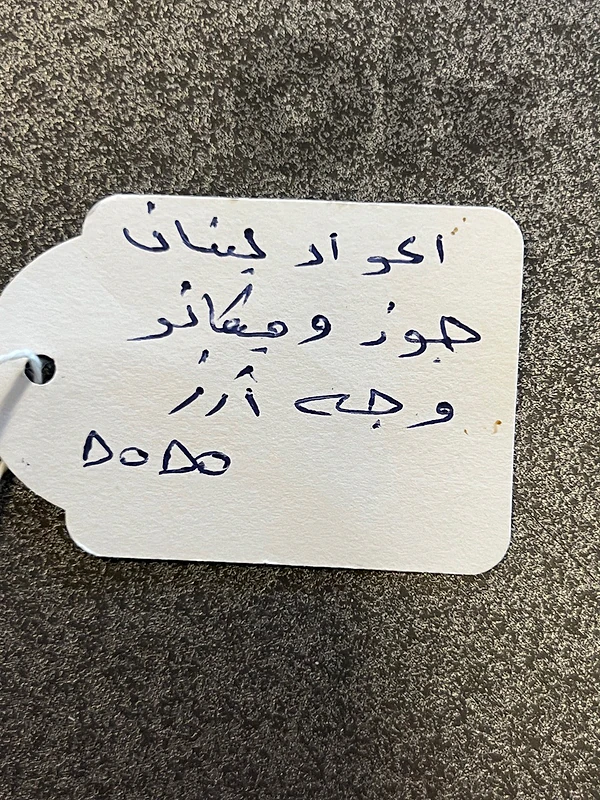 اعواد لبنان
جوز و ميكانو
وجه أرز
DODO